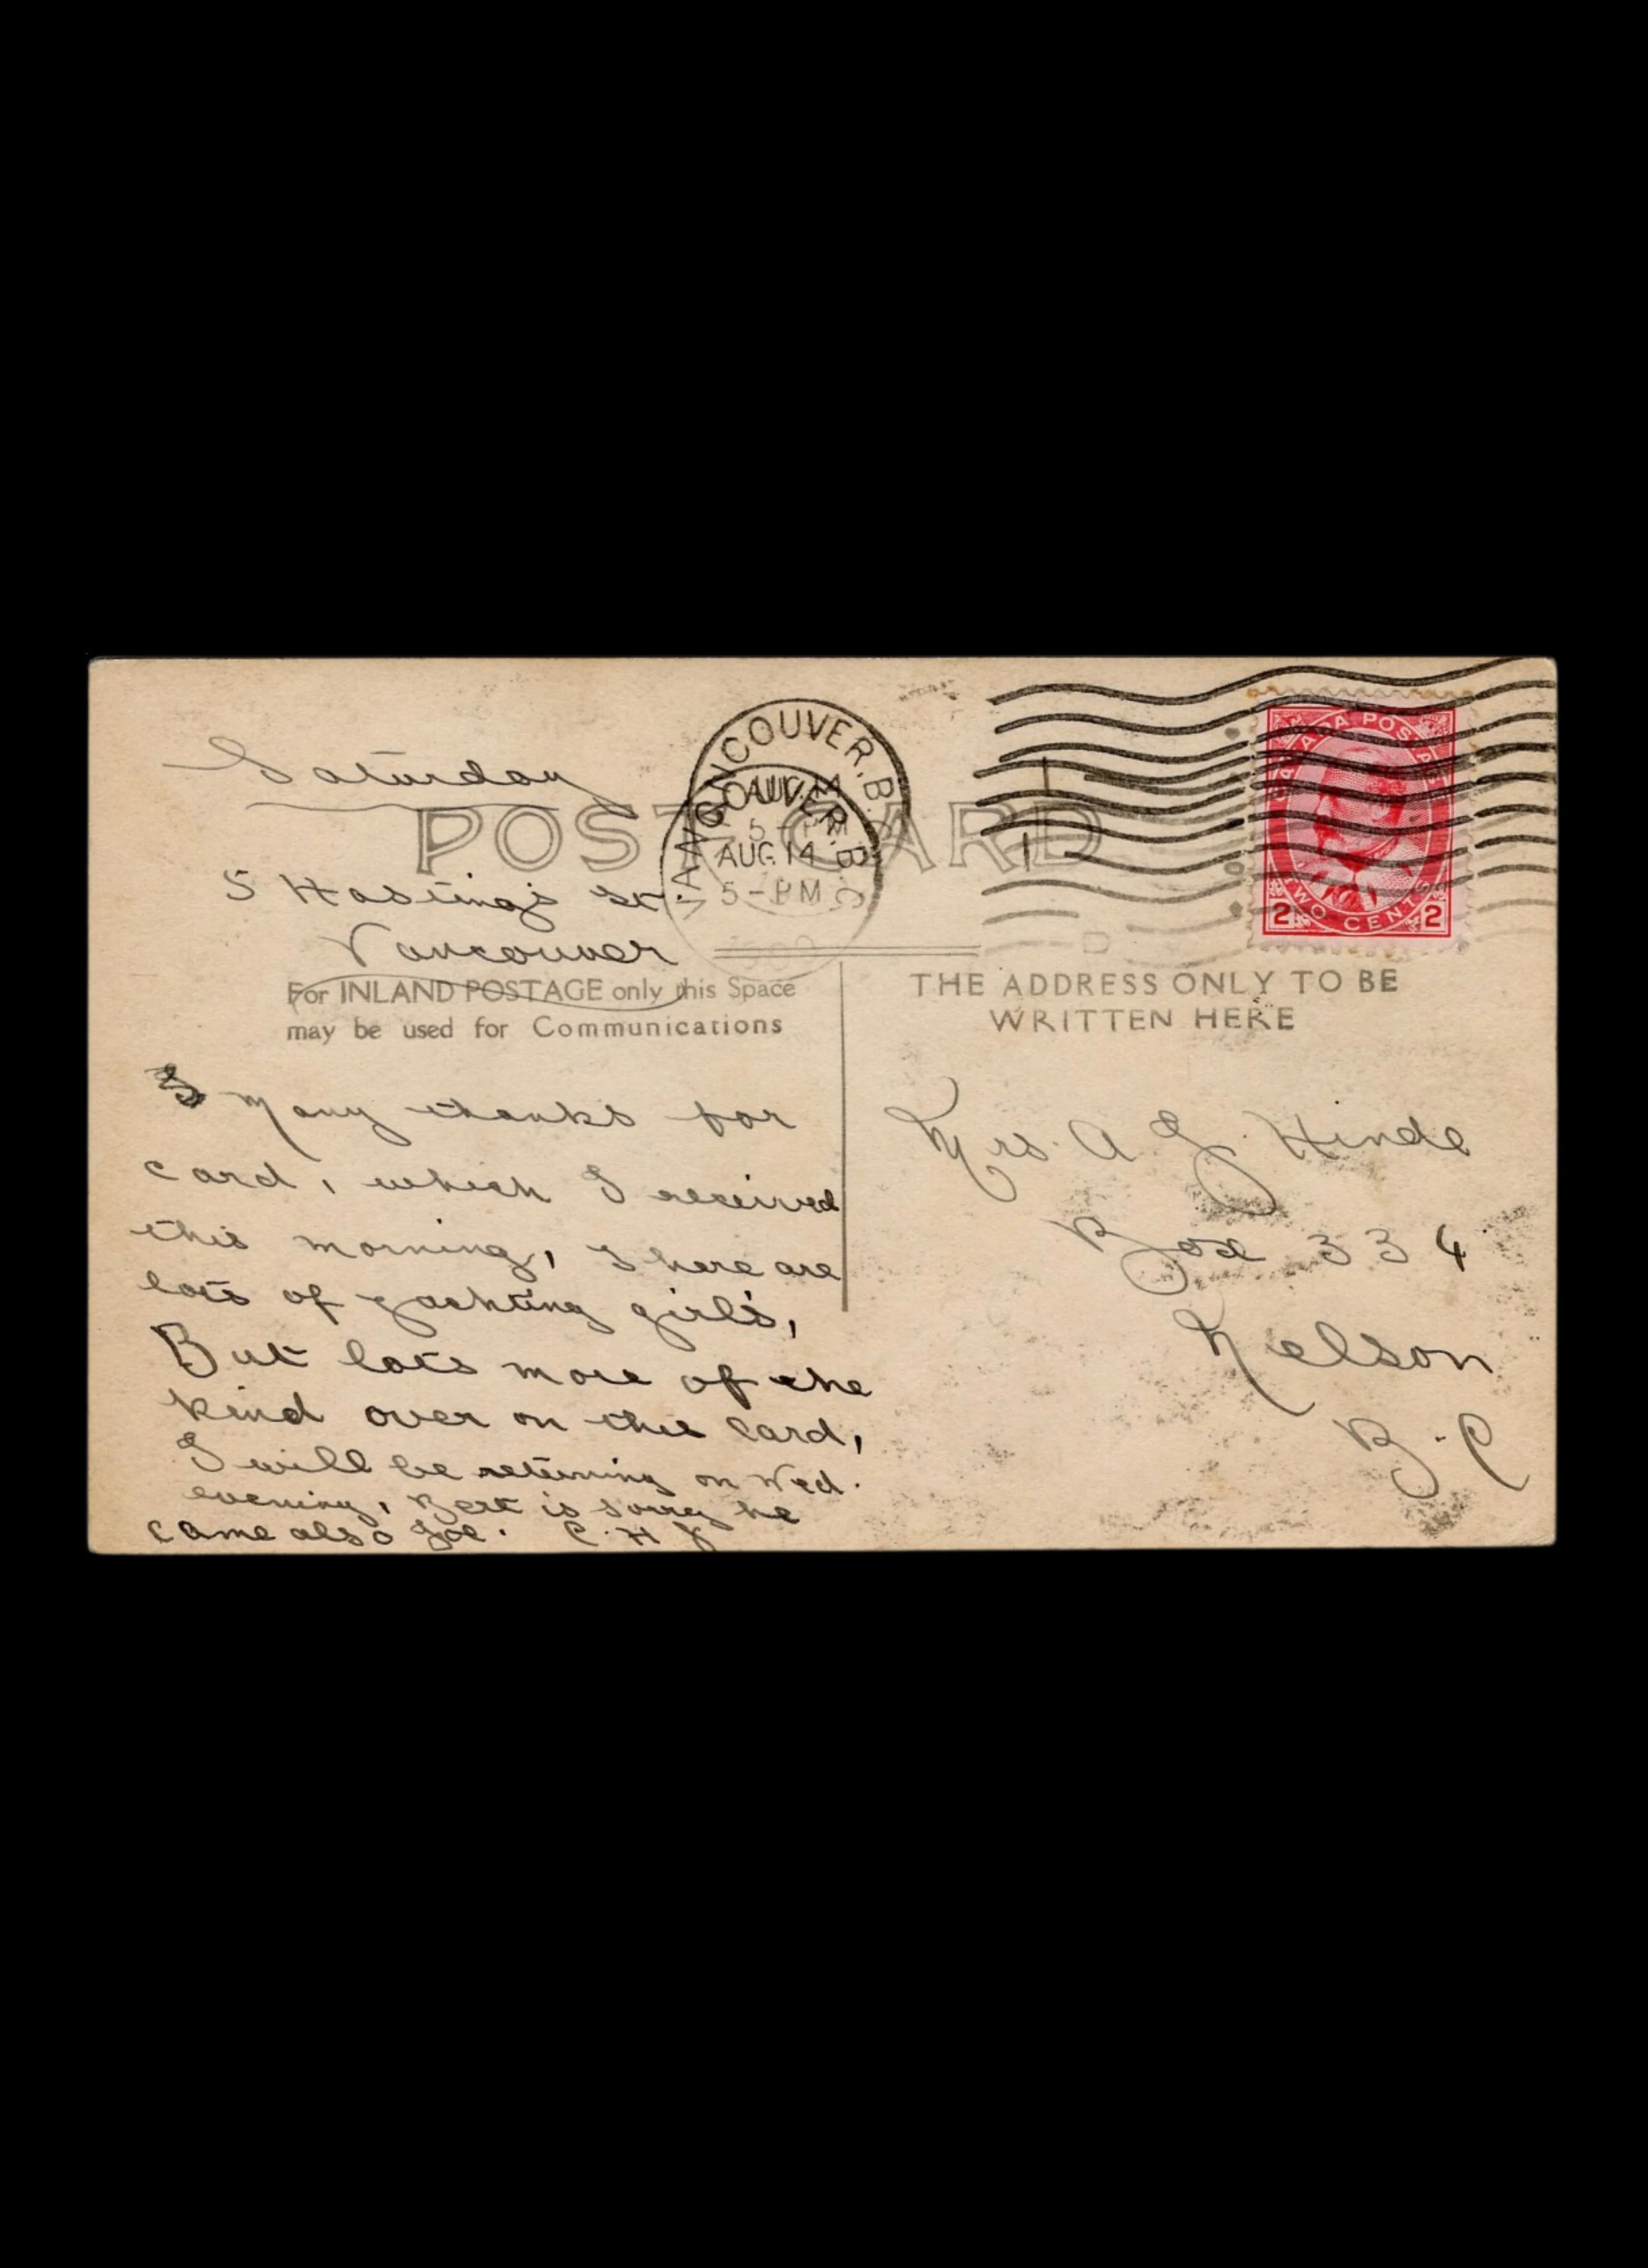 Saturday
POST CARD
VANCOUVER. B.C
AUG 14
5 - PM
VANCOUVER. B.C
AUG 14
5 - PM
CANADA POSTAGE
TWO CENTS
2 2
5 Hastings St.
Vancouver
For INLAND POSTAGE only this Space
may be used for Communications
THE ADDRESS ONLY TO BE
WRITTEN HERE
Many thanks for
card, which I received
this morning, There are
lots of yachting girls,
But lots more of the
kind over on this card,
I will be returning on Wed.
evening, Bert is sorry he
came also Joe. C. H J
Mrs. A J. Hinde
Box 334
Nelson
B.C